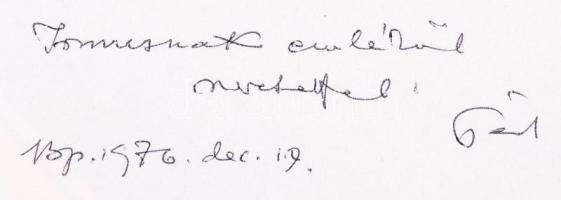 Tomusnak emlékül
szeretettel:
Pál
Bp. 1976. dec. 19.